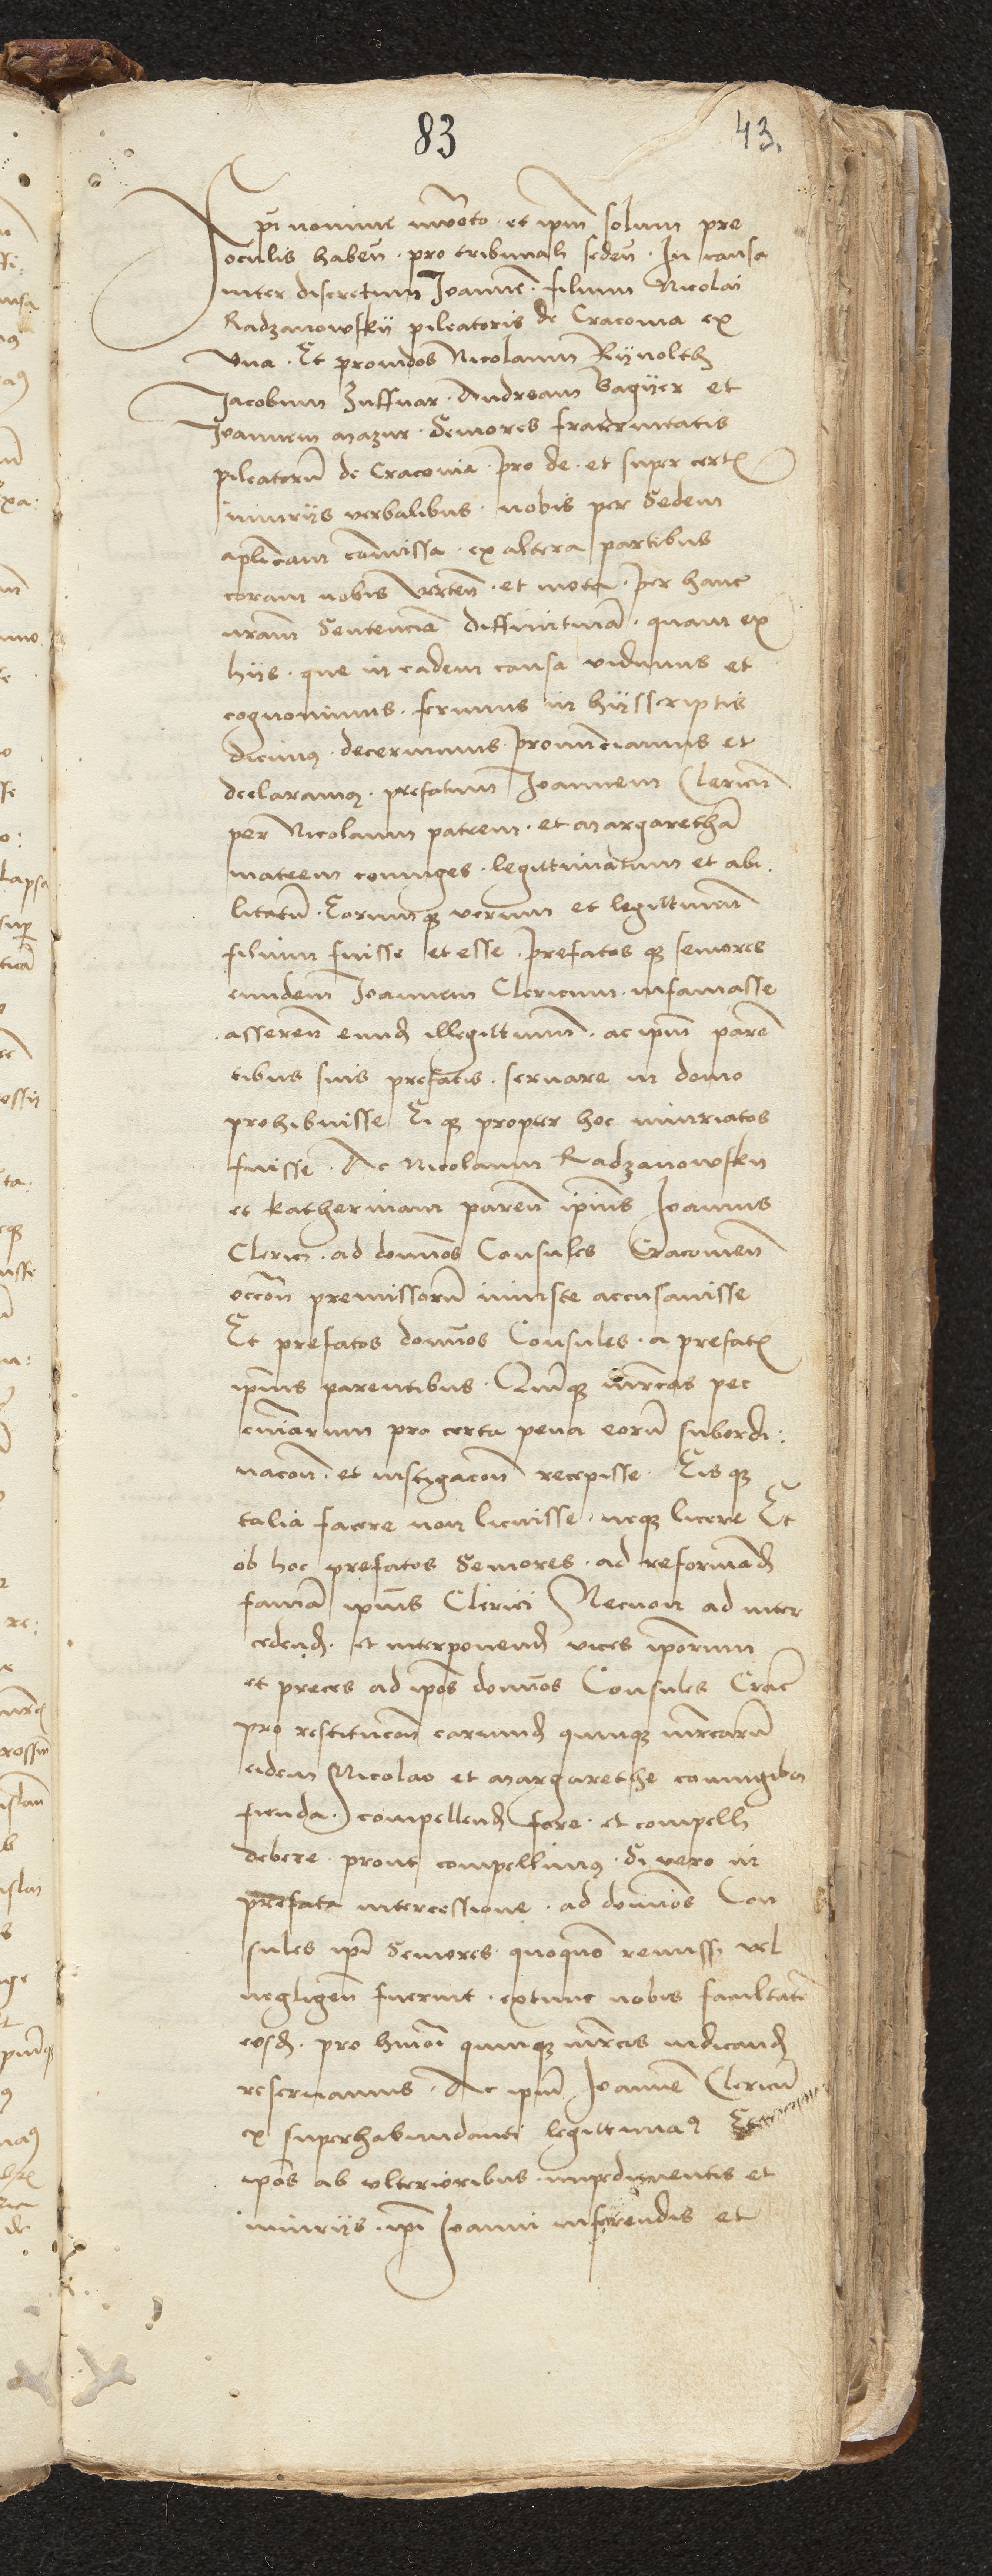 83
43.
Xpi nomine invocato · et ipm̄ solum pre
oculis haben̄ · pro tribunali seden̄ · In causa
inter discretum Joannē · filium Nicolai
Radzanowskij pileatoris de Cracovia ex
Una · Et providos Nicolaum Rijnolth
Jacobum Zuffnar · Andream Bagijer et
Joannem Mazur · Seniores fraternitatis
pileatorū de Cracovia · pro de · et super cert͛
iniuriis verbalibus · nobis per Sedem
aplicam comissa · ex altera partibus
coram nobis verten̄ · et mota · per hanc
nram̄ Sentenciā diffinitivā · quam ex
hijs · que in eadem causa vidimus et
cognovimus · ferimus in hijsscriptis
dicimꝰ · decernimus · pronunciamus et
declaramꝰ · prefatum Joannem Clericū
per Nicolaum patrem · et Margarethā
matrem coniuges · legittimatum et abi
litatū · Eorumqꝫ verum et legittimum̄
filium fuisse et esse · prefatos qꝫ seniores
eundem Joannem Clericum · infamasse
· asseren̄ eund̄ illegittimum̄ · ac ipm̄ paren̄
tibus suis prefatis · servare in domo
prohibuisse Ei qꝫ propter hoc iniuriatos
fuisse · Ac Nicolaum Radzanowskij
et Katherinam paren̄ ipius Joannis
Clerici · ad domnos Consules Cracovien̄
occon̄ premissorū iniuste accusavisse
Et prefatos domnos Consules · a prefat͛
ipius parentibus · Quinqꝫ mrcas pec
cuniarum pro certa pena eorū subordi:
nacon̄ · et instigacon̄ recepisse · Eis qꝫ
talia facere non licuisse · neqꝫ licere Et
ob hoc prefatos Seniores · ad reformand̄
famā ipius Clerici Necnon ad inter
cedend̄ · et interponend̄ vices ipsorum
et preces ad ipos domnos Consules Crac̄
pro restitucon̄ earund̄ quinqꝫ mrcarū
eidem Nicolao et Margarethe coniugibus
fienda · compellend̄ fore · et compelli
debere · prout compellimꝰ · Si vero in
prefata intercessione · ad domnos Con
sules ipi Seniores · quoquō remissi vel
negligen̄ fuerint · extunc nobis facultatē
eosd̄ · pro hmōi quinqꝫ mrcis iudicand̄
reservamus · Ac ipm̄ Joannē Clericū
ex superhabundanti legittimaꝰ
ipos ab ulterioribus impedimentis et
iniuriis · ipi Joanni inferendis et